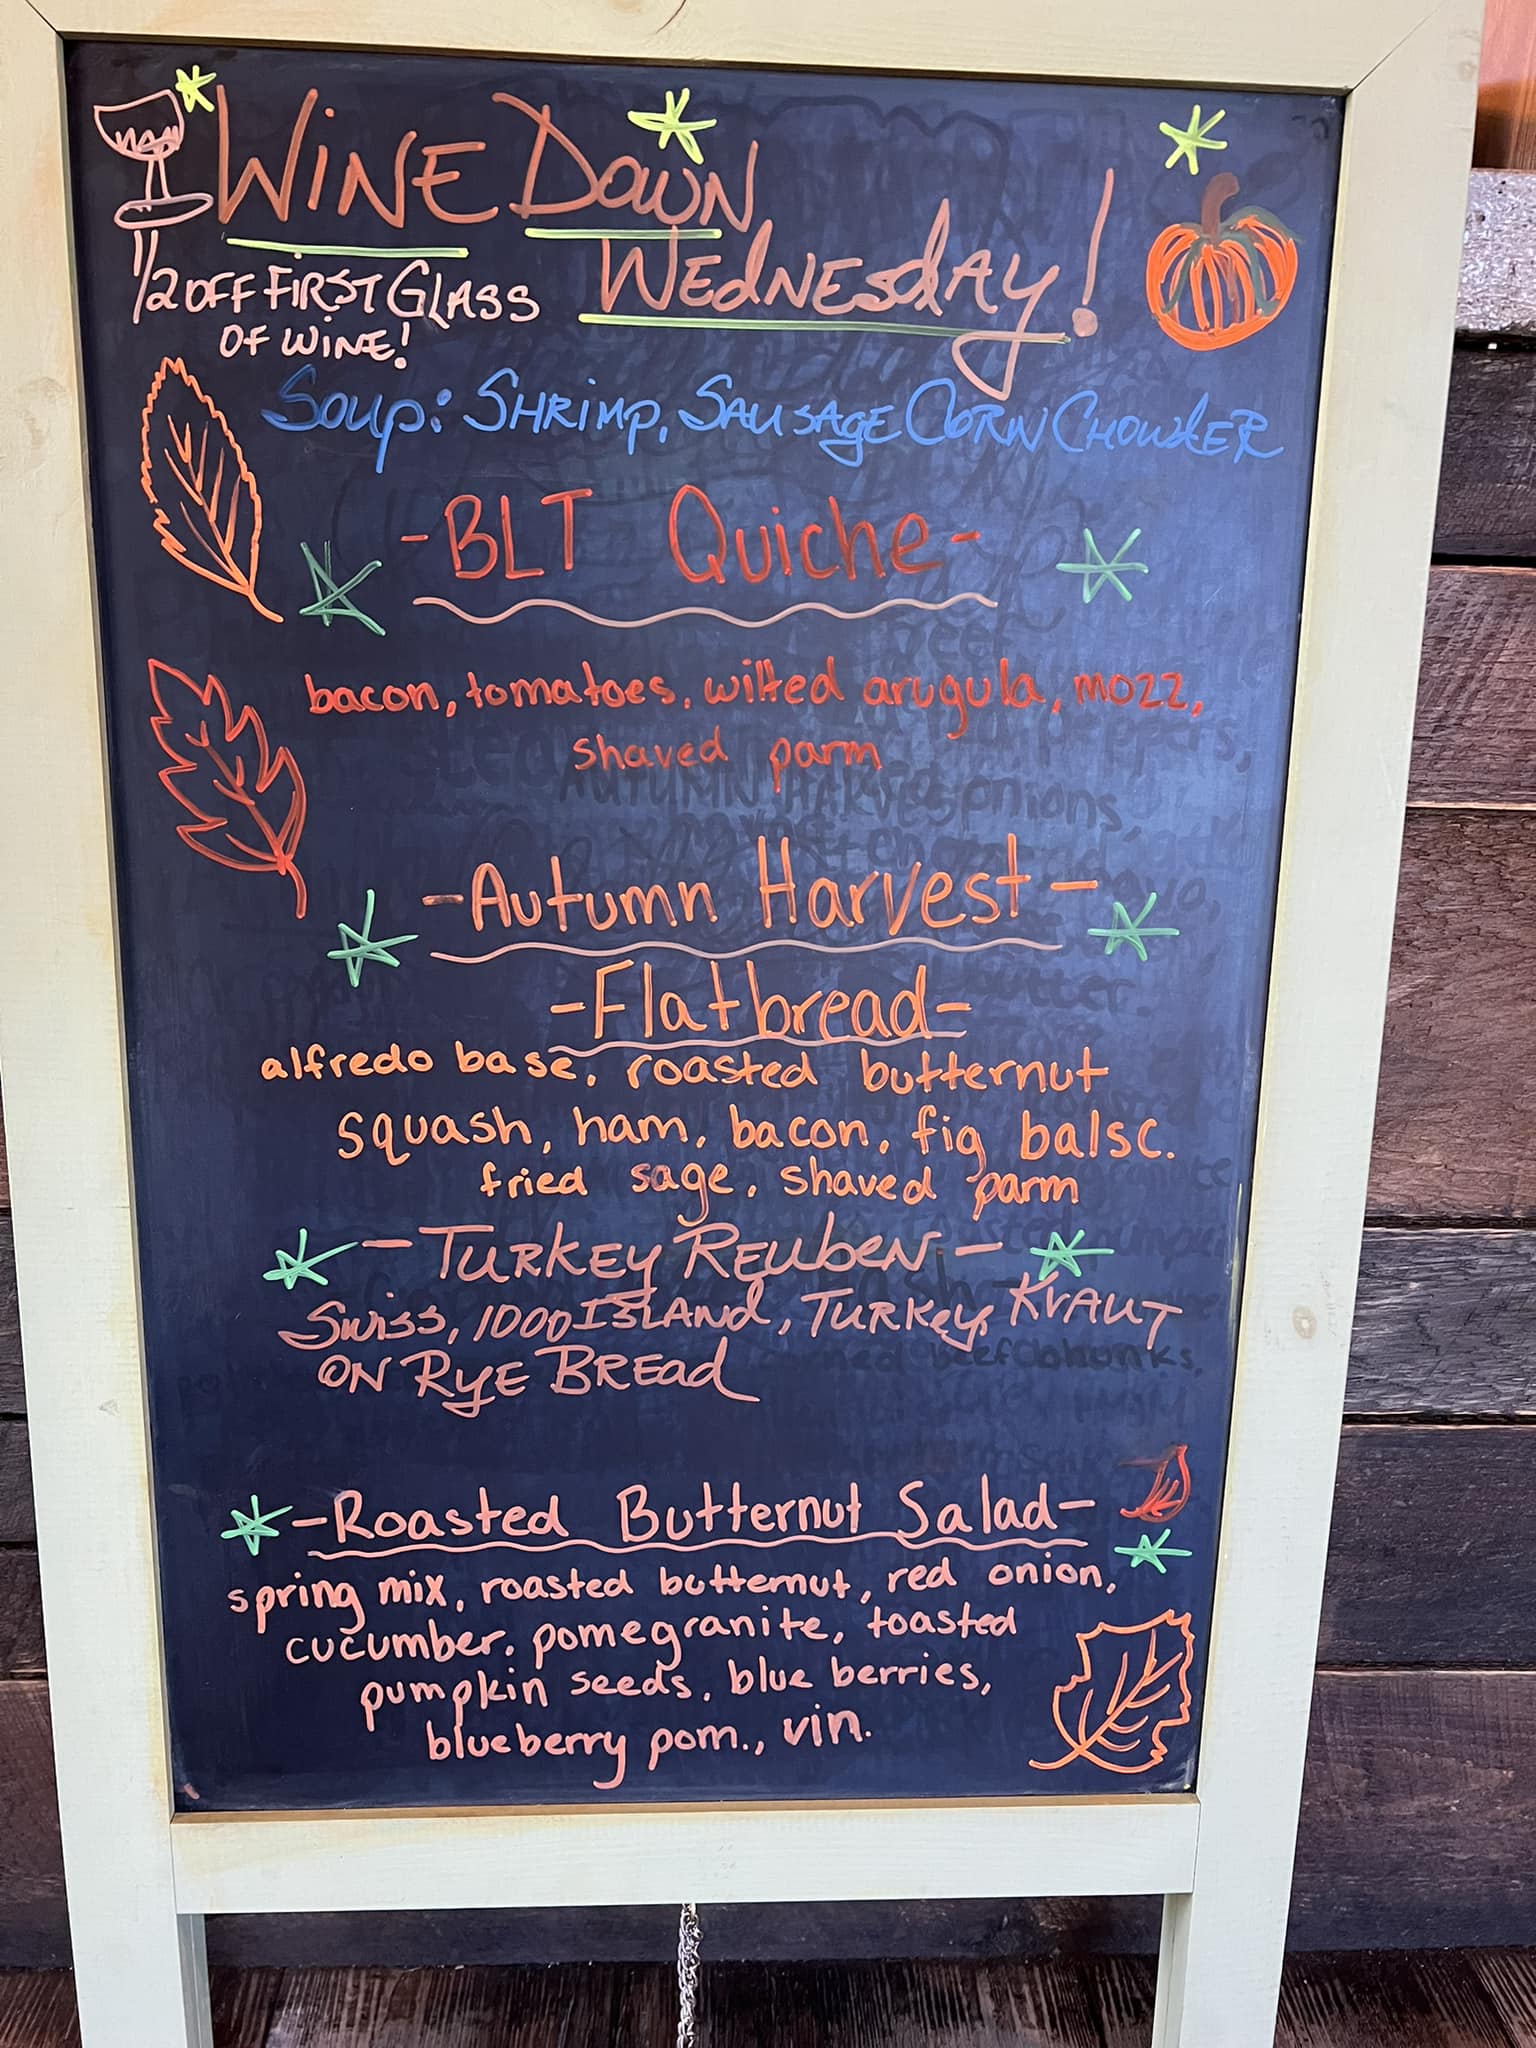 WINE DOWN
WEDNESDAY!
1/2 OFF FIRST GLASS
OF WINE!
Soup: SHRIMP, SAUSAGE CORN CHOWDER
-BLT Quiche-
bacon, tomatoes, wilted arugula, mozz,
shaved parm
-Autumn Harvest-
-Flatbread-
alfredo base, roasted butternut
squash, ham, bacon, fig balsc.
fried sage, shaved parm
-TURKEY REUBEN-
SWISS, 1000 ISLAND, TURKEY, KRAUT
ON RYE BREAD
-Roasted Butternut Salad-
spring mix, roasted butternut, red onion,
cucumber, pomegranite, toasted
pumpkin seeds, blue berries,
blueberry pom., vin.